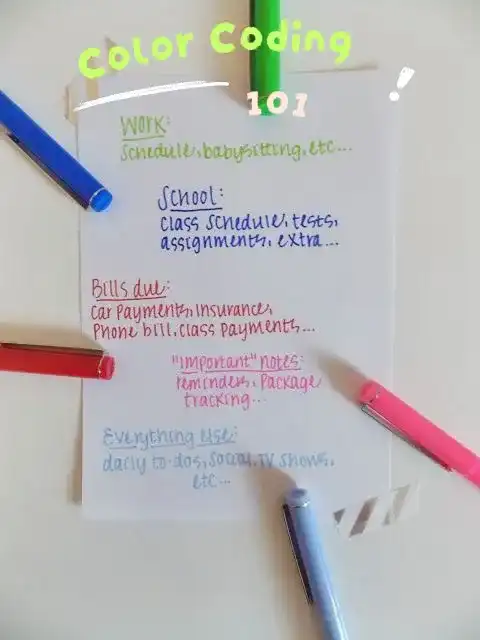 Color Coding
101 !
Work:
Schedule, babysitting, etc...
School:
class schedule, tests,
assignments, extra...
Bills due:
car payments, insurance,
Phone bill, class payments...
"important" notes:
reminders, package
tracking...
Everything else:
daily to-dos, social, TV shows,
etc...